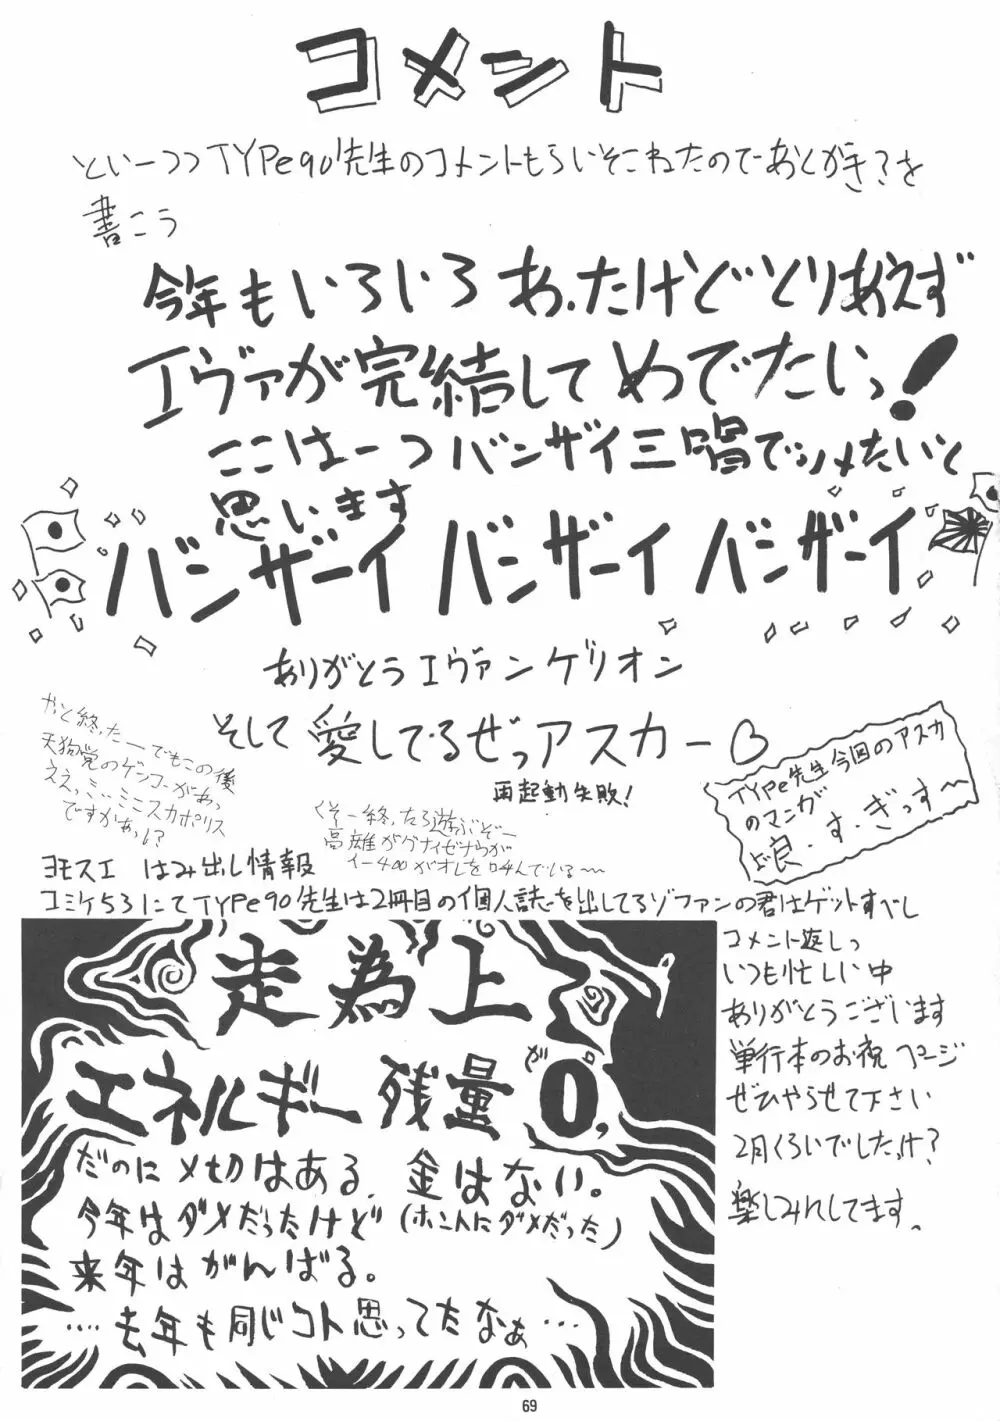 コメント
といーつつTYPe90先生のコメントもらいそこねたのであとがき?を
書こう
今年もいろいろあったけどとりあえず
エヴァが完結してめでたいっ!
ここは一つバンザイ三唱でシメたいと
思います
バンザーイ バンザーイ バンザーイ
ありがとうエヴァンゲリオン
そして愛してるぜっアスカー♡
再起動失敗!
やっと終ったーでもこの後
天狗党のゲンコーがあっ
ええっミ、ミニスカポリス
ですかあっ!?
くそー終ったら遊ぶぞー
イー400がオレを呼んでいる〜
TYPe先生今回のアスカ
のマンガ
良・す・ぎっす〜
ヨモスエ はみ出し情報
コミケ53にてTYPe90先生は2冊目の個人誌を出してるゾファンの君はゲットすべし
コメント返しっ
いつも忙しい中
ありがとうございます
単行本のお祝ページ
ぜひやらせて下さい
2月くらいでしたっけ?
楽しみにしてます。
走為上
エネルギー残量が0。
だのに〆切はある。金はない。
今年はダメだったけど(ホントにダメだった)
来年はがんばる。
‥‥去年も同じコト思ってたなぁ…
69